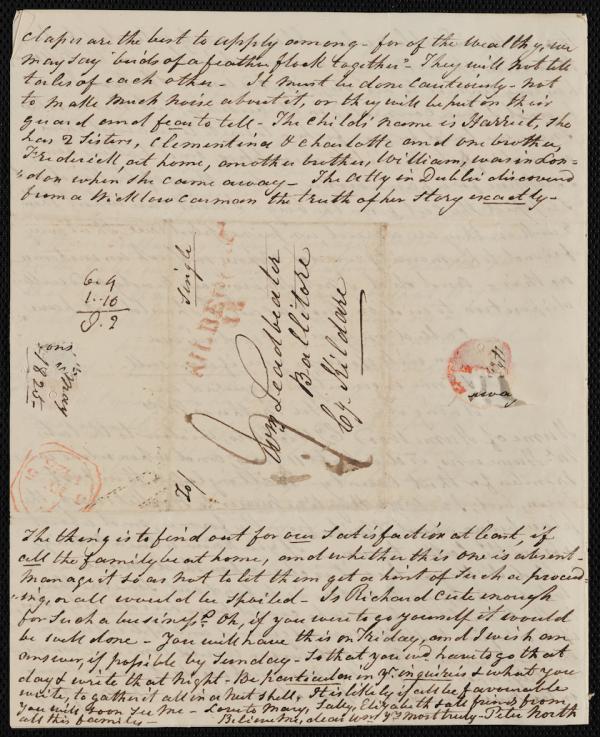 Clapes are the best to apply among - for of the wealthy, we
may say "birds of a feather flock together" - They will not tell
tales of each other - It must be done cautiously - not
to make much noise about it, or they will be put on their
guard and fear to tell - The child's name is Harriet, she
has 2 Sisters, Clementina & Charlotte and one brother,
Frederick, at home, another brother, William, was in Lon-
"don when she came away - The Atty in Dublin discovered
from a Wicklow carman the truth of her Story exactly -
6..9
1..10
8..2
single
KILDE
To/
Wm Leadbeater
Ballitore
Co. Kildare
1825
away
The thing is to find out for our Satisfaction at least, if
all the family be at home, and whether this one is absent -
Manage it so as not to let them get a hint of Such a proceed-
"ing, or all would be spoiled - Is Richard cute enough
for Such a business? Oh, if you were to go yourself it would
be well done - You will have this on Friday, and I wish an
answer, if possible by Sunday - So that you wd. have to go that
day & write that night - Be particular in yr. inquiries & what you
write, to gather it all in a nut shell. It is likely if all be favourable
you will soon See me - Love to Mary, Sally, Elizabeth & all frds from
all this family - Believe me, dear Wm. yrs most truly - Peter North